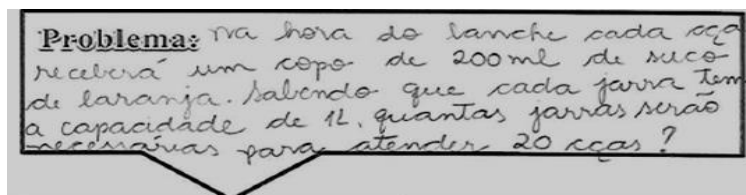 Problema: na hora do lanche cada cça
receberá um copo de 200 ml de suco
de laranja. Sabendo que cada jarra tem
a capacidade de 1L, quantas jarras serão
necessárias para atender 20 cças?